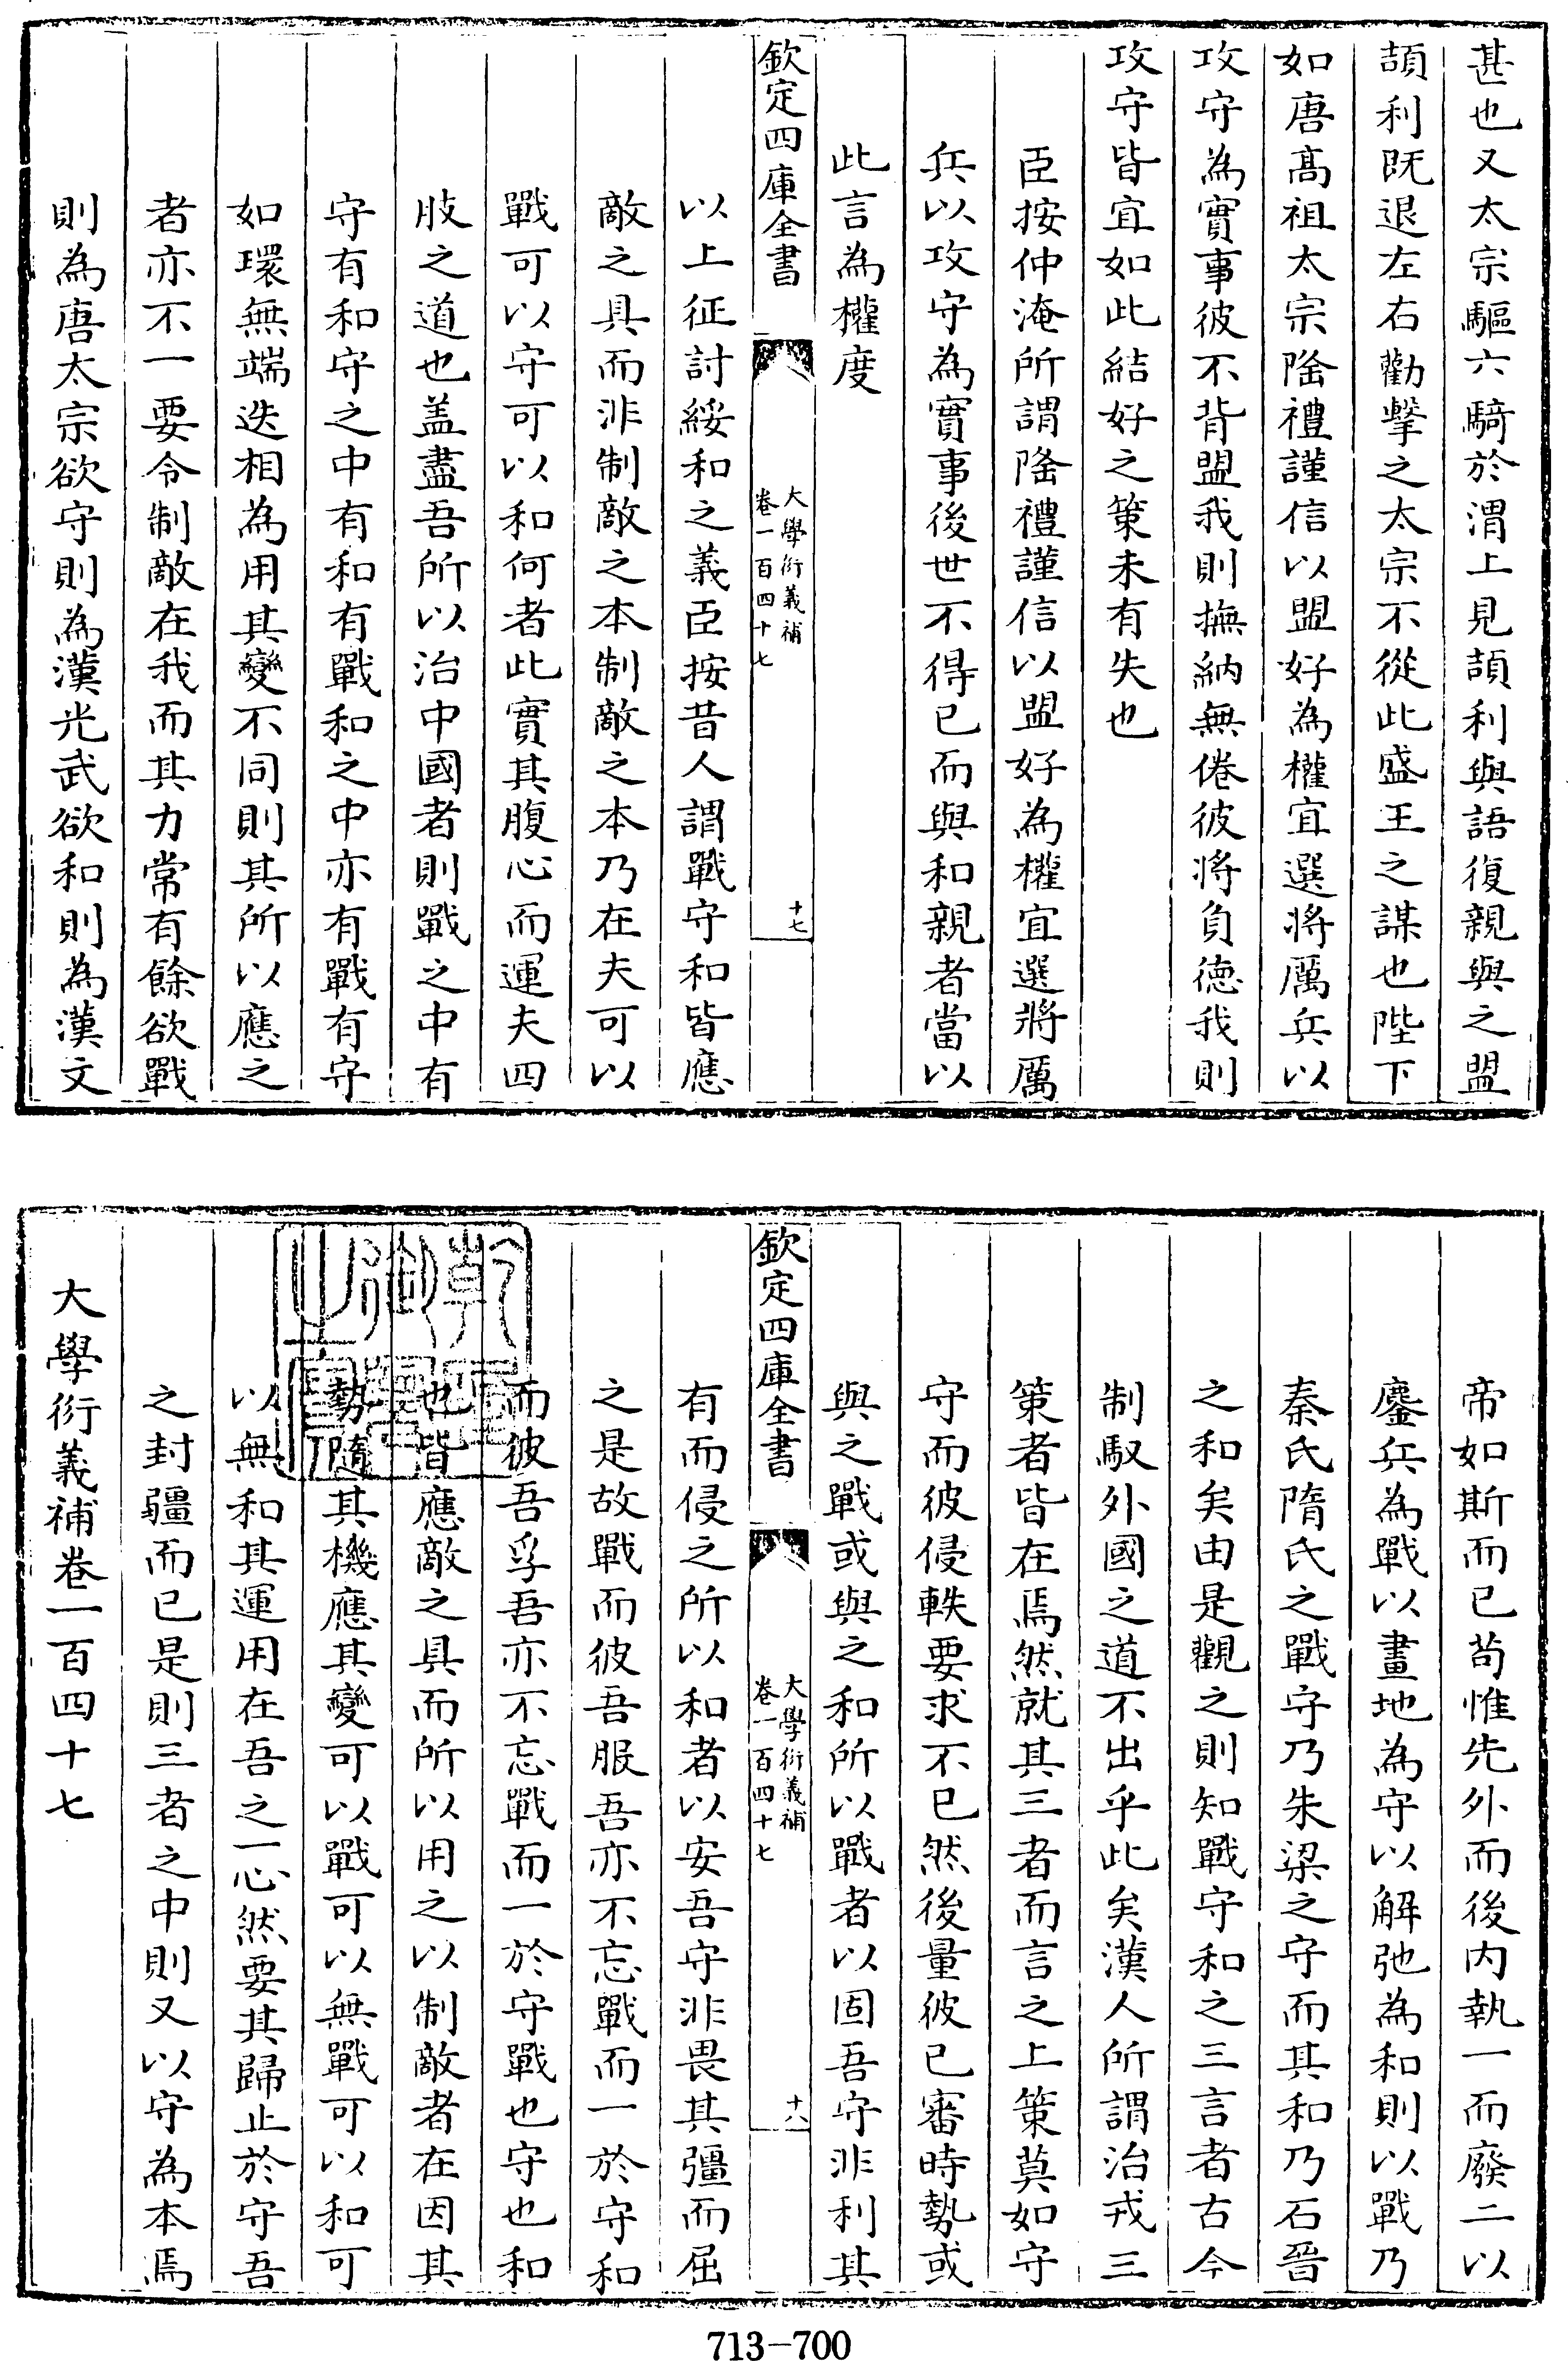 甚也又太宗驅六騎於渭上見頡利與語復親與之盟
頡利既退左右勸擊之太宗不從此盛王之謀也陛下
如唐髙祖太宗隆禮謹信以盟好為權宜選將厲兵以
攻守為實事彼不背盟我則撫納無倦彼將負徳我則
攻守皆宜如此結好之策未有失也
臣按仲淹所謂隆禮謹信以盟好為權宜選將厲
兵以攻守為實事後世不得已而與和親者當以
此言為權度
欽定四庫全書
大學衍義補
卷一百四十七
十七
以上征討綏和之義臣按昔人謂戰守和皆應
敵之具而非制敵之本制敵之本乃在夫可以
戰可以守可以和何者此實其腹心而運夫四
肢之道也盖盡吾所以治中國者則戰之中有
守有和守之中有和有戰和之中亦有戰有守
如環無端迭相為用其變不同則其所以應之
者亦不一要令制敵在我而其力常有餘欲戰
則為唐太宗欲守則為漢光武欲和則為漢文
帝如斯而已茍惟先外而後内執一而廢二以
鏖兵為戰以畫地為守以解弛為和則以戰乃
秦氏隋氏之戰守乃朱梁之守而其和乃石晉
之和矣由是觀之則知戰守和之三言者古今
制馭外國之道不出乎此矣漢人所謂治戎三
策者皆在焉然就其三者而言之上策莫如守
守而彼侵軼要求不已然後量彼已審時勢或
與之戰或與之和所以戰者以固吾守非利其
欽定四庫全書
大學衍義補
卷一百四十七
十八
有而侵之所以和者以安吾守非畏其彊而屈
之是故戰而彼吾服吾亦不忘戰而一於守和
而彼吾孚吾亦不忘戰而一於守戰也守也和
也皆應敵之具而所以用之以制敵者在因其
勢隨其機應其變可以戰可以無戰可以和可
以無和其運用在吾之一心然要其歸止於守吾
之封疆而已是則三者之中則又以守為本焉
大學衍義補卷一百四十七
乾隆御覽之寶
713-700